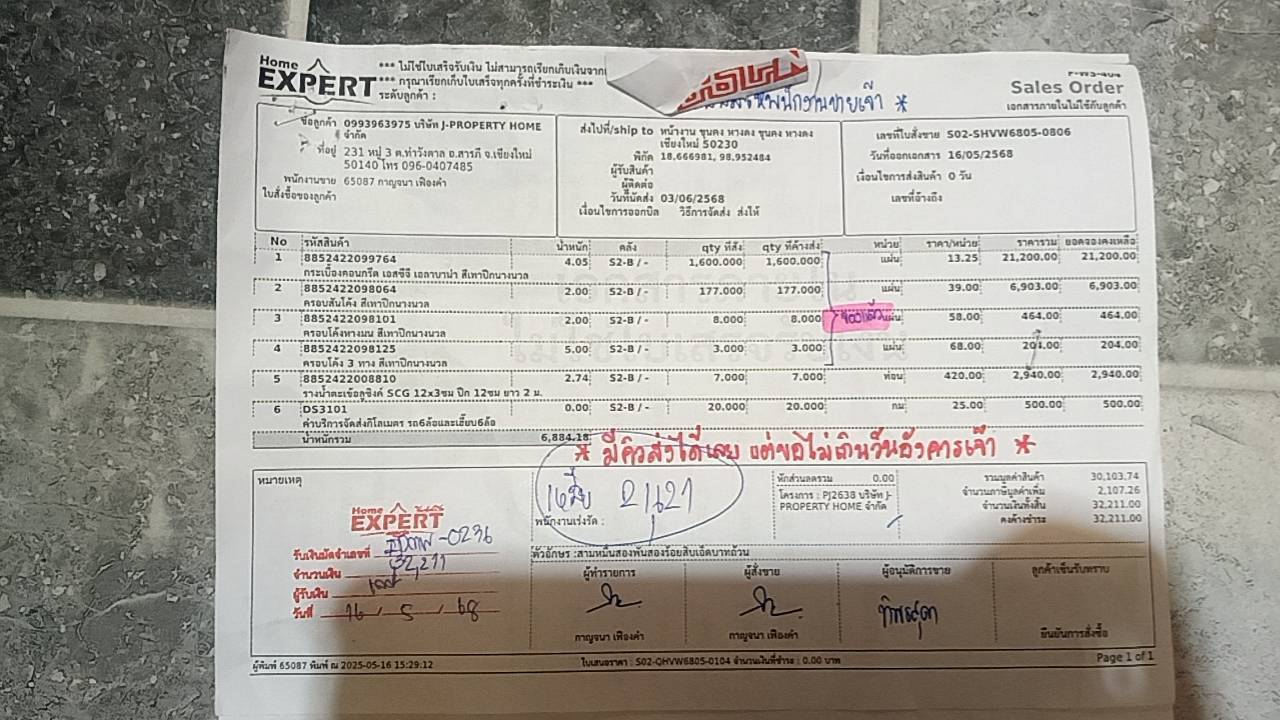 Home
EXPERT
*** ไม่ใช่ใบเสร็จรับเงิน ไม่สามารถเรียกเก็บเงินจาก
*** กรุณาเรียกเก็บใบเสร็จทุกครั้งที่ชำระเงิน ***
ระดับลูกค้า :
Sales Order
เอกสารภายในไม่ใช้กับลูกค้า
ชื่อลูกค้า 0993963975 บริษัท J-PROPERTY HOME
จำกัด
ที่อยู่ 231 หมู่ 3 ต.ท่าวังตาล อ.สารภี จ.เชียงใหม่
50140 โทร 096-0407485
พนักงานขาย 65087 กาญจนา เฟืองคำ
ใบสั่งซื้อของลูกค้า
ส่งไปที่/ship to หน้างาน ขุนคง หางดง ขุนคง หางดง
เชียงใหม่ 50230
พิกัด 18.666981, 98.952484
ผู้รับสินค้า
ผู้ติดต่อ
วันที่นัดส่ง 03/06/2568
เงื่อนไขการออกบิล วิธีการจัดส่ง ส่งให้
เลขที่ใบสั่งขาย S02-SHVW6805-0806
วันที่ออกเอกสาร 16/05/2568
เงื่อนไขการส่งสินค้า 0 วัน
เลขที่อ้างถึง
No รหัสสินค้า น้ำหนัก คลัง qty ที่สั่ง qty ที่ค้างส่ง หน่วย ราคา/หน่วย ราคารวม ยอดจองคงเหลือ
1 8852422099764 4.05 S2-B / - 1,600.000 1,600.000 แผ่น 13.25 21,200.00 21,200.00
กระเบื้องคอนกรีต เอสซีจี เอลาบาน่า สีเทาปีกนางนวล
2 8852422098064 2.00 S2-B / - 177.000 177.000 แผ่น 39.00 6,903.00 6,903.00
ครอบสันโค้ง สีเทาปีกนางนวล
3 8852422098101 2.00 S2-B / - 8.000 8.000 แผ่น 58.00 464.00 464.00
ครอบโค้งหางมน สีเทาปีกนางนวล
4 8852422098125 5.00 S2-B / - 3.000 3.000 แผ่น 68.00 204.00 204.00
ครอบโค้ง 3 ทาง สีเทาปีกนางนวล
5 8852422008810 2.74 S2-B / - 7.000 7.000 ท่อน 420.00 2,940.00 2,940.00
รางน้ำตะเข้อลูซิงค์ SCG 12x3ซม ปีก 12ซม ยาว 2 ม.
6 DS3101 0.00 S2-B / - 20.000 20.000 กม 25.00 500.00 500.00
ค่าบริการจัดส่งกิโลเมตร รถ6ล้อและเฮี๊ยบ6ล้อ
น้ำหนักรวม 6,884.18
* มีคิวส่งได้เลย แต่ขอไม่เกินวันอังคารเจ้า *
หมายเหตุ
21,621
พนักงานเร่งรัด :
หักส่วนลดรวม 0.00
โครงการ : PJ2638 บริษัท J-
PROPERTY HOME จำกัด
รวมมูลค่าสินค้า 30,103.74
จำนวนภาษีมูลค่าเพิ่ม 2,107.26
จำนวนเงินทั้งสิ้น 32,211.00
คงค้างชำระ 32,211.00
Home
EXPERT
รับเงินมัดจำเลขที่ -0236
จำนวนเงิน 32,211
ผู้รับเงิน
วันที่ 16 / 5 / 68
ตัวอักษร : สามหมื่นสองพันสองร้อยสิบเอ็ดบาทถ้วน
ผู้ทำรายการ ผู้สั่งขาย ผู้อนุมัติการขาย ลูกค้าเซ็นรับทราบ
กาญจนา เฟืองคำ กาญจนา เฟืองคำ ยืนยันการสั่งซื้อ
ผู้พิมพ์ 65087 พิมพ์ ณ 2025-05-16 15:29:12 ใบเสนอราคา : S02-QHVW6805-0104 จำนวนเงินที่ชำระ : 0.00 บาท Page 1 of 1